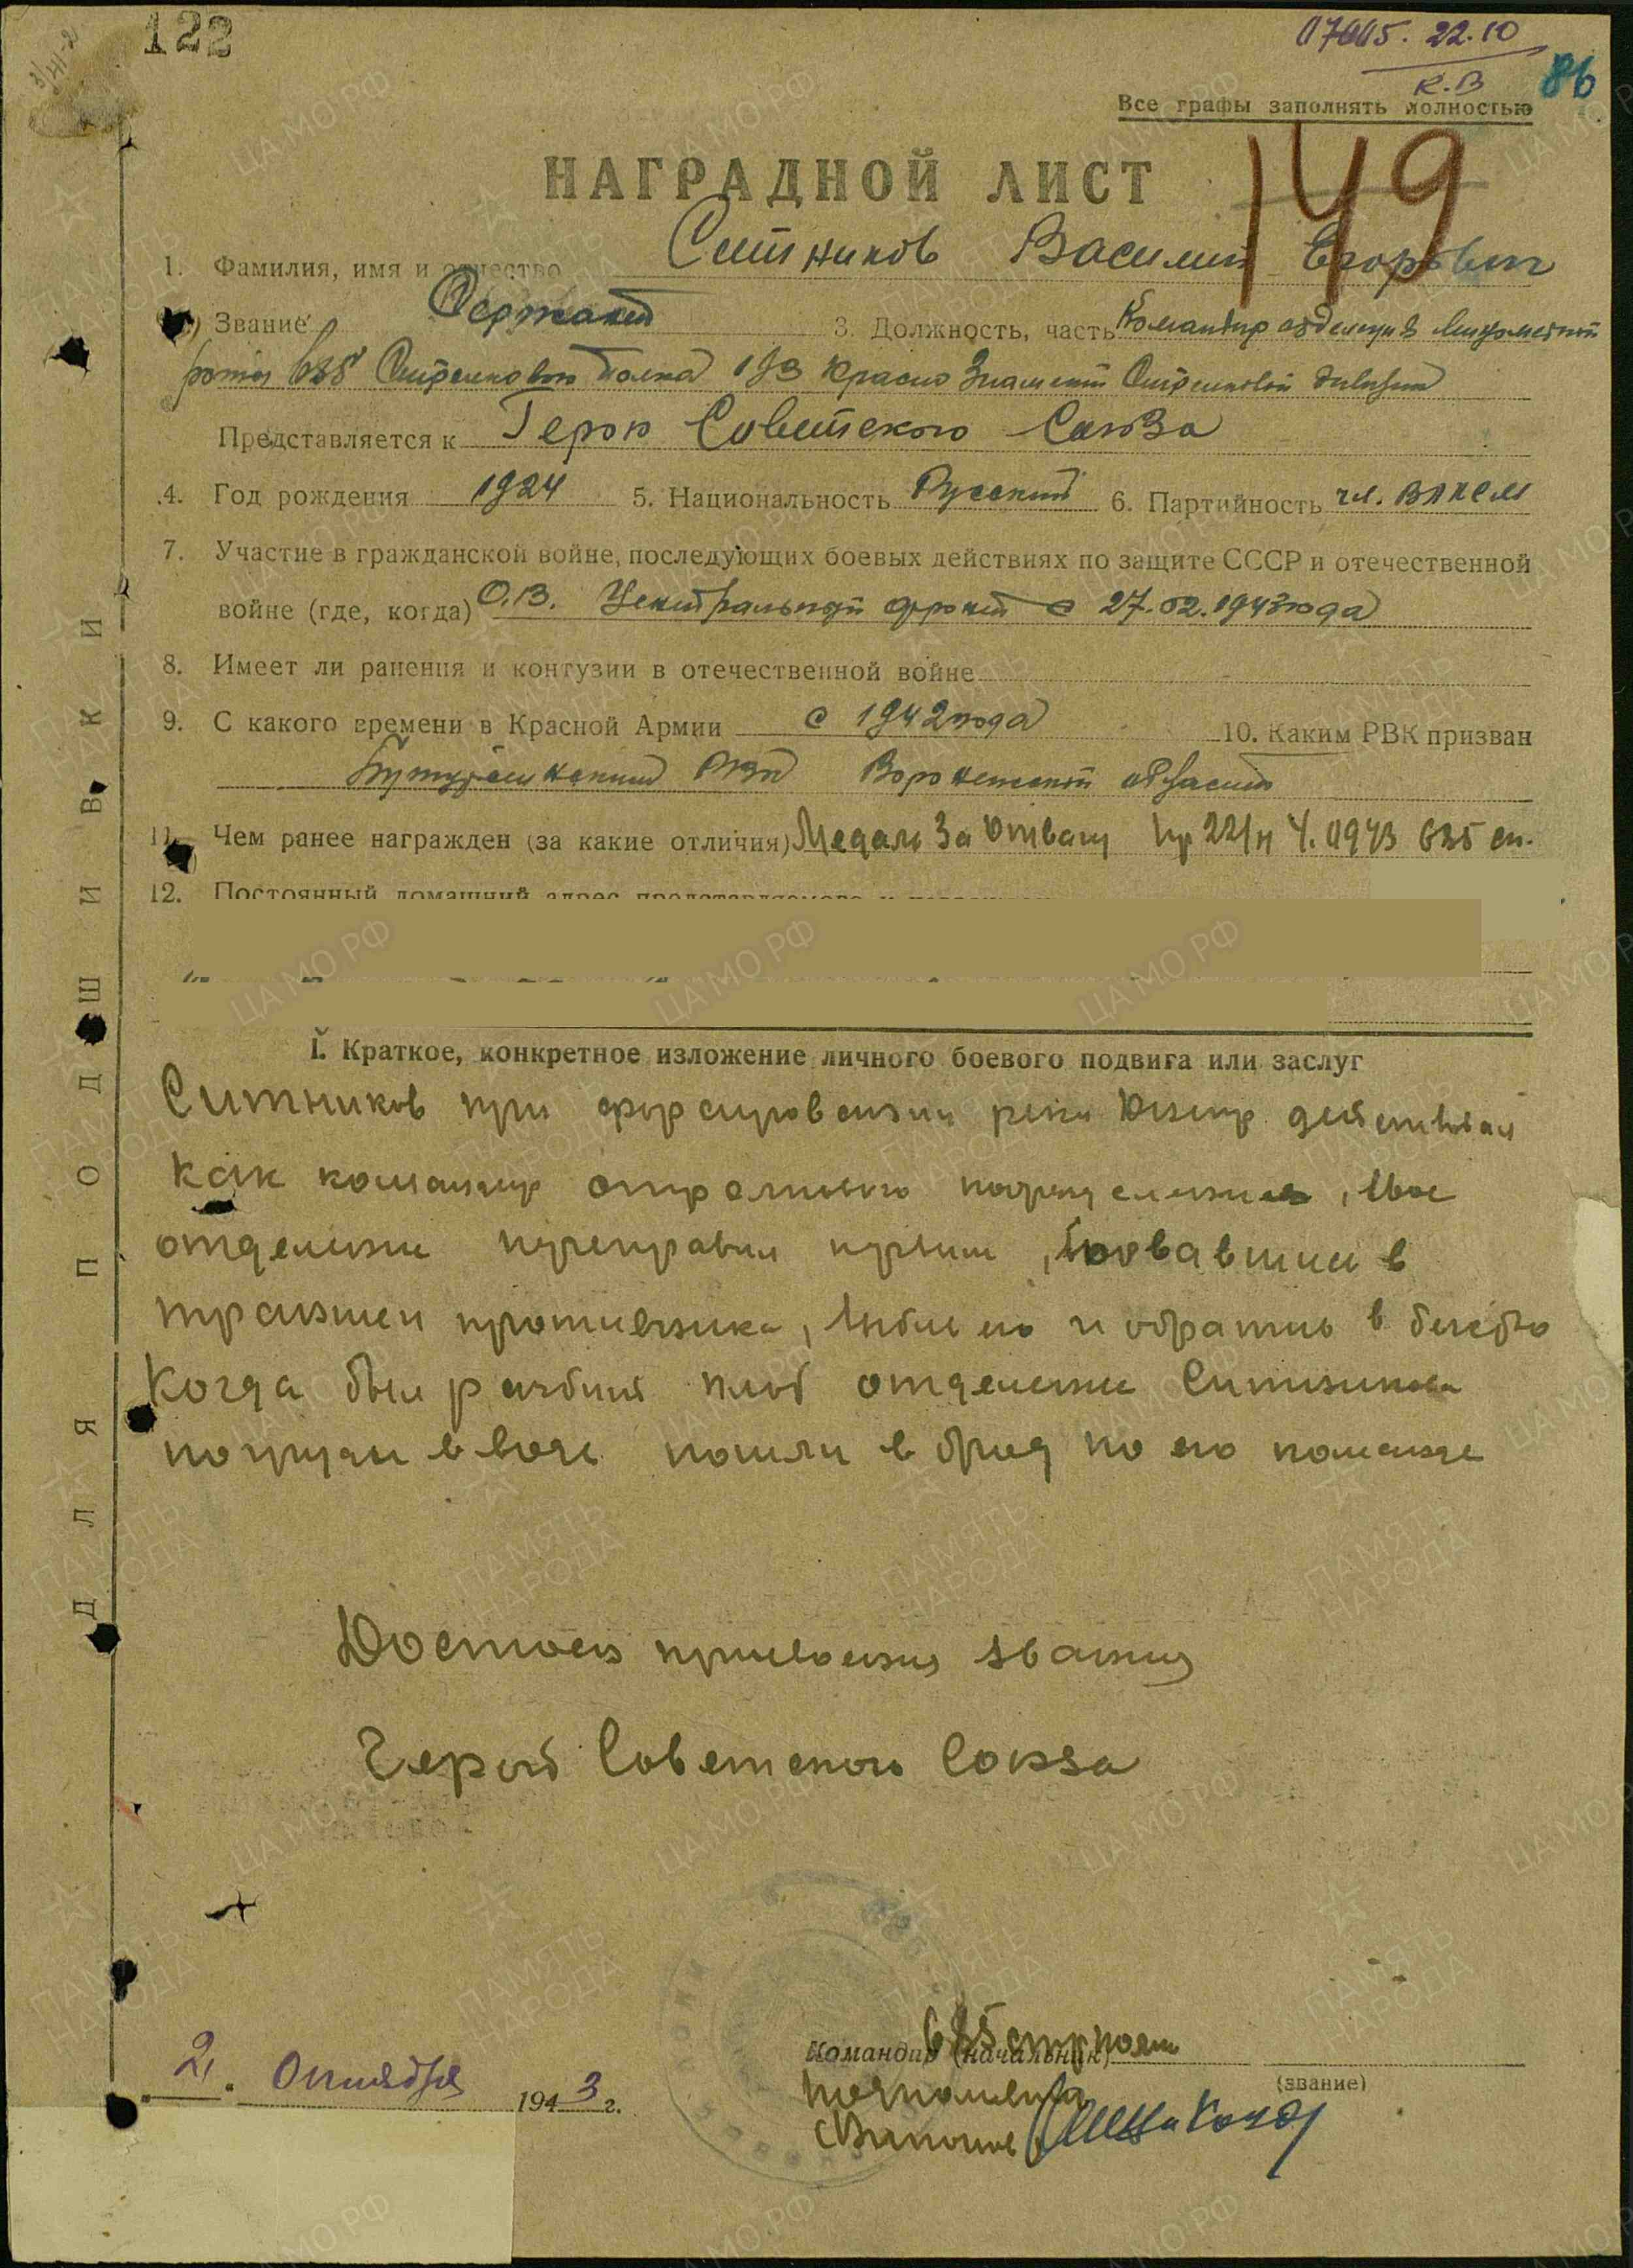 122
17005. 22.10
К.В
86
Все графы заполнять полностью
149
НАГРАДНОЙ ЛИСТ
1. Фамилия, имя и отчество Ситников Василий Егорович
2) Звание Сержант 3. Должность, часть Командир отделения Минометной
роты 685 Стрелкового Полка 193 Красно Знаменной Стрелковой дивизии
Представляется к Герою Советского Союза
4. Год рождения 1924 5. Национальность Русский 6. Партийность чл. ВЛКСМ
7. Участие в гражданской войне, последующих боевых действиях по защите СССР и отечественной
войне (где, когда) О.В. Центральной фронт с 27.02.1943 года
8. Имеет ли ранения и контузии в отечественной войне
9. С какого времени в Красной Армии с 1942 года 10. Каким РВК призван
РВК Воронежской области
11. Чем ранее награжден (за какие отличия) Медаль За Отвагу Пр 22/н 685 сп.
12. Постоянный домашний адрес представляемого к
I. Краткое, конкретное изложение личного боевого подвига или заслуг
Ситников при форсировании реки Днепр действовал
как командир отдельного подразделения, Свое
отделение переправил первым, ворвавшись в
траншеи противника, выбил его и обратив в бегство
Когда был разбит плот отделение Ситникова
по груди в воде пошли в брод по его команде
Достоин присвоения звания
Герой Советского Союза
2. Октября 1943 г.
Командир (начальник) 685 стр полка
(звание)
подполковник
ДЛЯ ПОДШИВКИ
ПАМЯТЬ НАРОДА
ЦА МО РФ